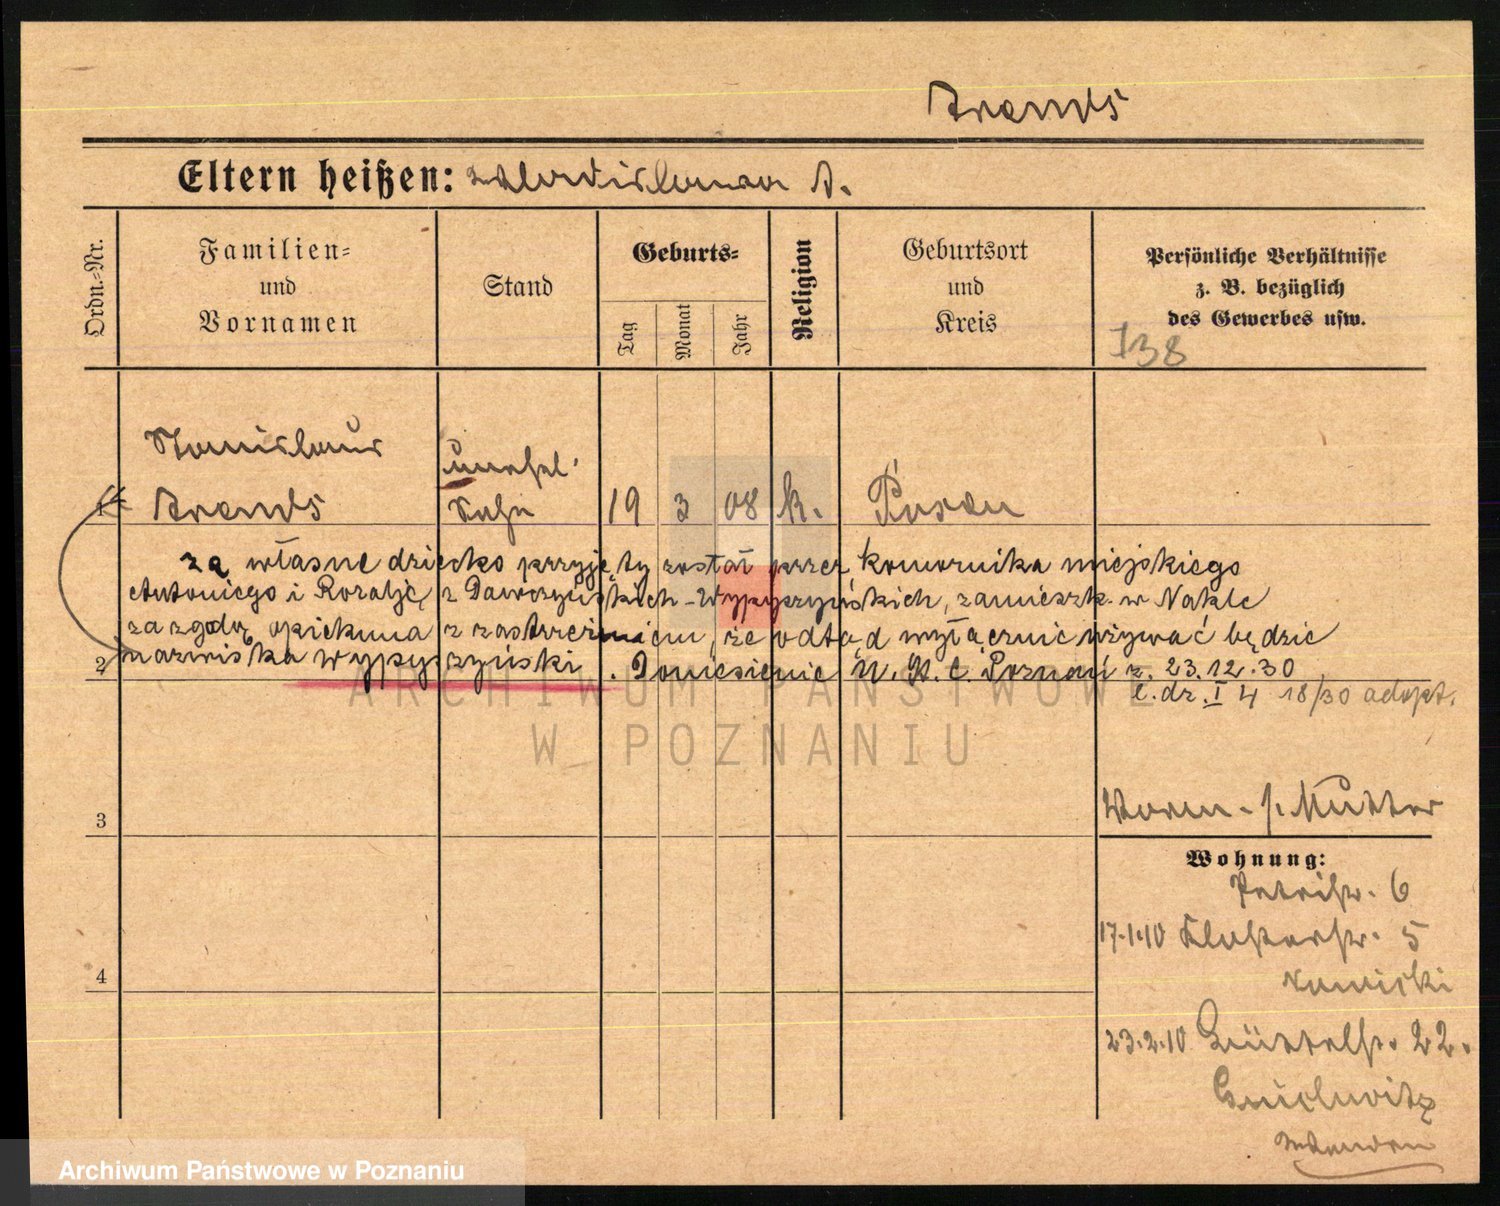 Arends
Eltern heißen: Wladislawa A.
Ordn.-Nr.
Familien-
und
Vornamen
Stand
Geburts-
Tag
Monat
Jahr
Religion
Geburtsort
und
Kreis
Persönliche Verhältnisse
z. B. bezüglich
des Gewerbes usw.
138
Stanislaus
unehel.
1 Arends Sohn 19 3 08 k. Posen
za własne dziecko przyjęty został przez komornika miejskiego
Antoniego i Rozalję z Dawczyńskich-Wypyszyńskich, zamieszk. w Nakle
za zgodą opiekuna z zastrzeżeniem, że odtąd wyłącznie używać będzie
2 nazwiska Wypyszyński. Doniesienie U. St. C. Poznań z 23.12.30
l. dz. I 4 18/30 adopt.
ARCHIWUM PAŃSTWOWE
W POZNANIU
3
Mutter
Wohnung:
Petristr. 6
17.1.10 Klosterstr. 5
4
23.2.10 22.
Archiwum Państwowe w Poznaniu